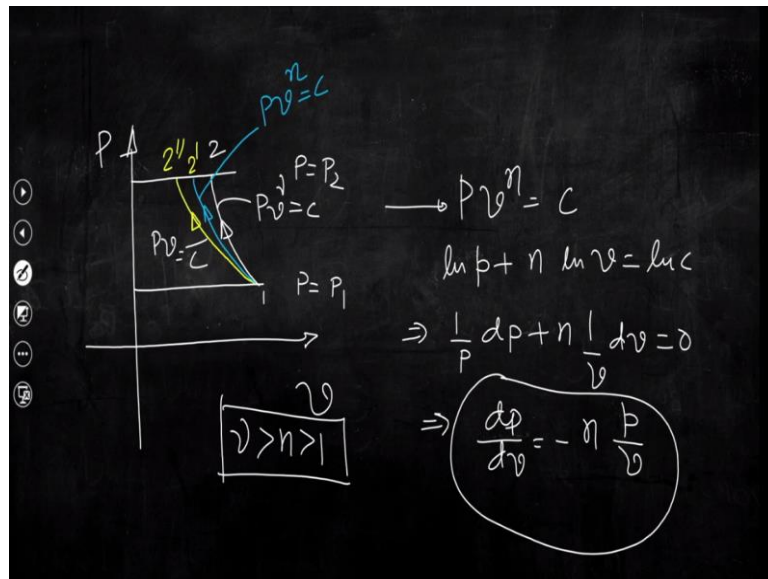 Pvⁿ=C
P
2'' 2' 2
P=P₂
Pv^γ=C
Pv=C
1
P=P₁
v
γ>n>1
Pvⁿ = C
ln p + n ln v = ln c
⇒ 1/p dp + n 1/v dv = 0
⇒ dp/dv = - n p/v